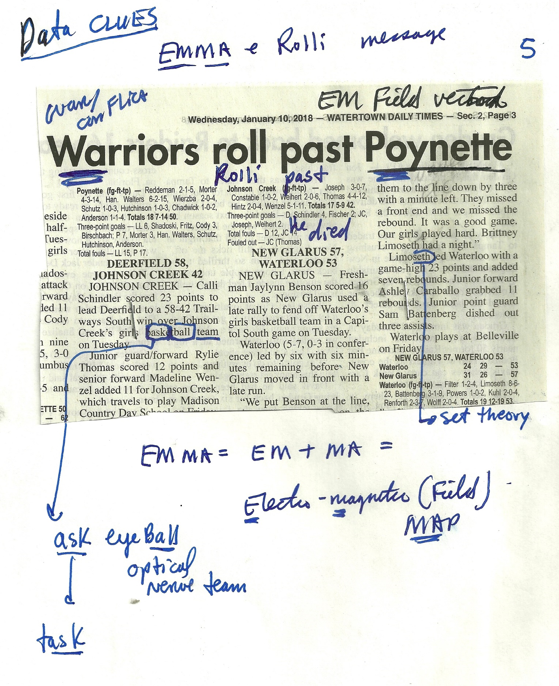 Data CLUES
EMMA e Rolli message
5
EM Field
Wednesday, January 10, 2018 — WATERTOWN DAILY TIMES — Sec. 2, Page 3
Warriors roll past Poynette
Rolli past
He died
Poynette (fg-ft-tp) — Reddeman 2-1-5, Morter
4-3-14, Han. Walters 6-2-15, Wierzba 2-0-4,
Schutz 1-0-3, Hutchinson 1-0-3, Chadwick 1-0-2,
Anderson 1-1-4. Totals 18 7-14 50.
Three-point goals — LL 6, Shadoski, Fritz, Cody 3,
Birschbach; P 7, Morter 3, Han. Walters, Schutz,
Hutchinson, Anderson.
Total fouls — LL 15, P 17.
DEERFIELD 58,
JOHNSON CREEK 42
JOHNSON CREEK — Calli
Schindler scored 23 points to
lead Deerfield to a 58-42 Trail-
ways South win over Johnson
Creek's girls basketball team
on Tuesday.
Junior guard/forward Rylie
Thomas scored 12 points and
senior forward Madeline Wen-
zel added 11 for Johnson Creek,
which travels to play Madison
Country Day School on Friday
Johnson Creek (fg-ft-tp) — Joseph 3-0-7,
Constable 1-0-2, Weihert 2-0-6, Thomas 4-4-12,
Hintz 2-0-4, Wenzel 5-1-11. Totals 17 5-9 42.
Three-point goals — D, Schindler 4, Fischer 2; JC,
Joseph, Weihert 2.
Total fouls — D 12, JC
Fouled out — JC (Thomas)
NEW GLARUS 57,
WATERLOO 53
NEW GLARUS — Fresh-
man Jaylynn Benson scored 16
points as New Glarus used a
late rally to fend off Waterloo's
girls basketball team in a Capi-
tol South game on Tuesday.
Waterloo (5-7, 0-3 in confer-
ence) led by six with six min-
utes remaining before New
Glarus moved in front with a
late run.
“We put Benson at the line,
them to the line down by three
with a minute left. They missed
a front end and we missed the
rebound. It was a good game.
Our girls played hard. Britney
Limoseth had a night.”
Limoseth led Waterloo with a
game-high 23 points and added
seven rebounds. Junior forward
Ashley Caraballo grabbed 11
rebounds. Junior point guard
Sam Battenberg dished out
three assists.
Waterloo plays at Belleville
on Friday.
NEW GLARUS 57, WATERLOO 53
Waterloo 24 29 — 53
New Glarus 31 26 — 57
Waterloo (fg-ft-tp) — Filter 1-2-4, Limoseth 8-6-
23, Battenberg 3-1-9, Powers 1-0-2, Kuhl 2-0-4,
Renforth 2-3-7, Wolff 2-0-4. Totals 19 12-19 53.
set theory
EMMA = EM + MA =
Electro-magnetic (Field)
MAP
ask eyeBall
optical
nerve team
task